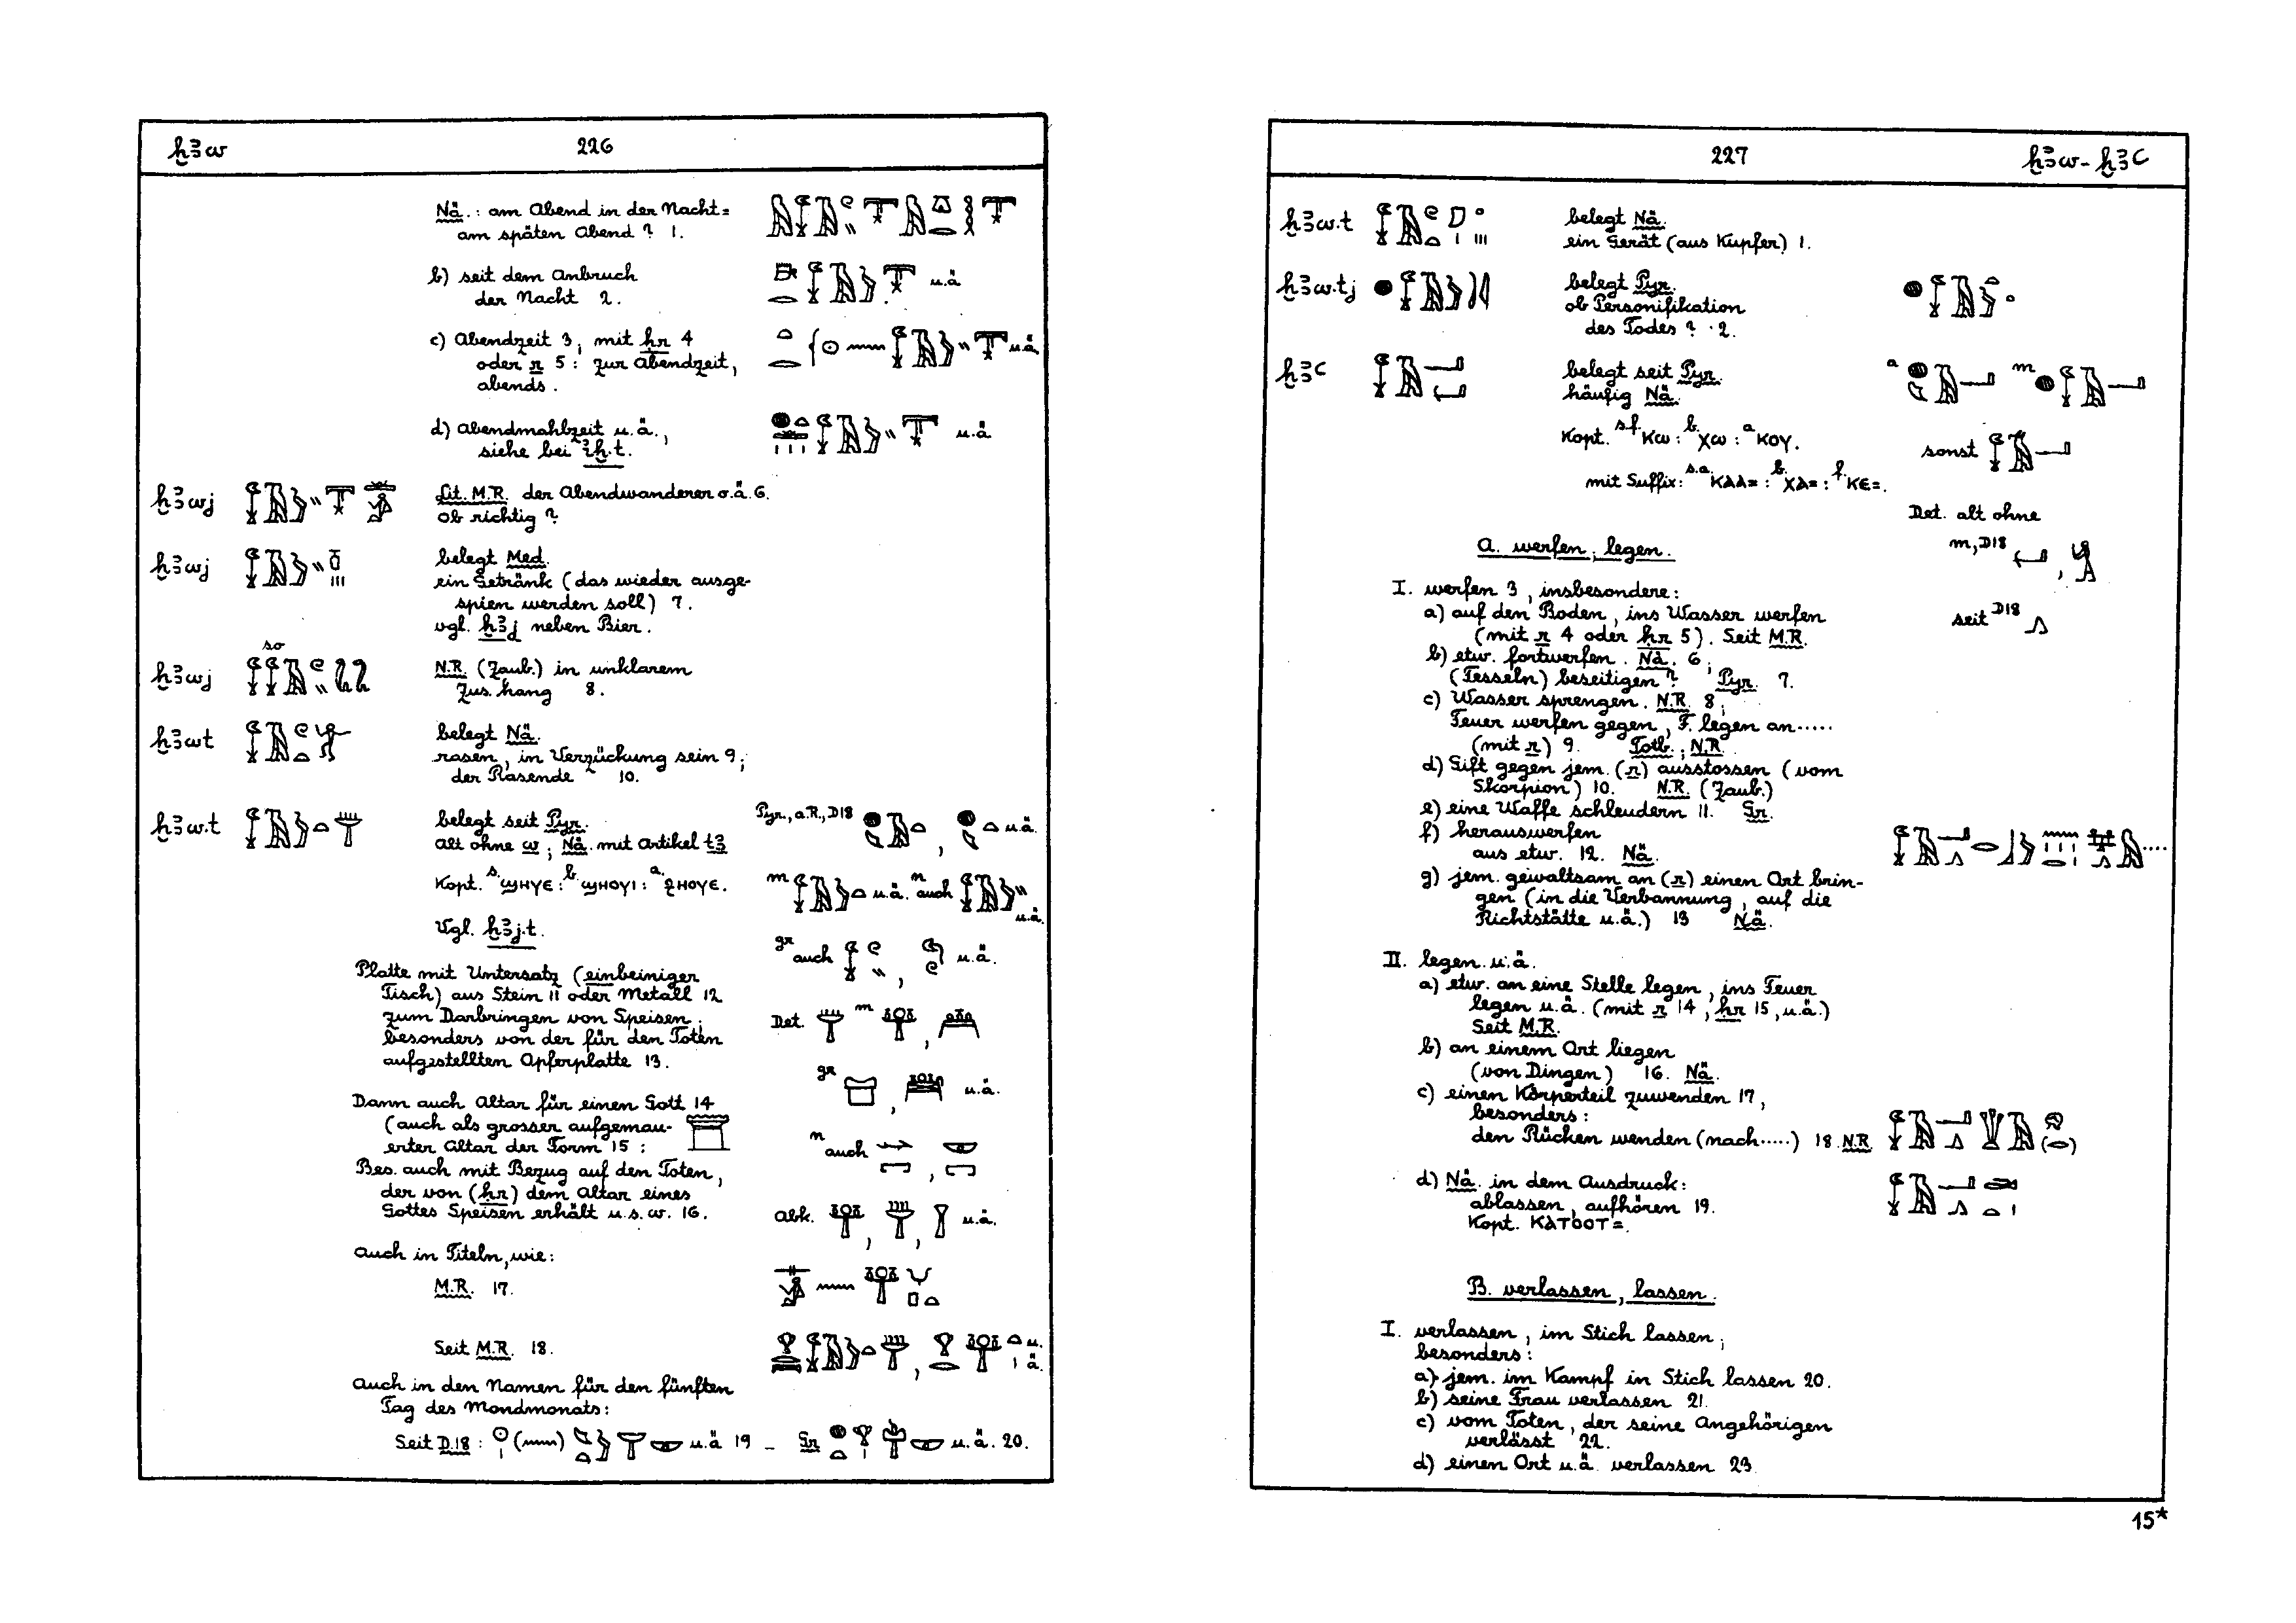 ḫꜣw 226
Nä.: am Abend in der Nacht =
am späten Abend? 1.
b) seit dem Anbruch
der Nacht 2.
u.ä
c) Abendzeit 3; mit ḥr 4
oder r 5: zur Abendzeit,
abends.
u.ä.
d) Abendmahlzeit u.ä.,
siehe bei iḫ.t.
u.ä
ḫꜣwj Lit. M.R. der Abendwanderer o.ä. 6.
ob richtig?
ḫꜣwj belegt Med.
ein Getränk (das wieder ausge-
spien werden soll) 7.
vgl. ḫꜣj neben Bier.
so
ḫꜣwj N.R. (Zaub.) in unklarem
Zus.hang 8.
ḫꜣwt belegt Nä.
rasen, in Verzückung sein 9;
der Rasende 10.
ḫꜣw.t belegt seit Pyr. Pyr., a.R., D18 , u.ä.
Alt ohne w; Nä. mit Artikel tꜣ
Kopt. s. ϣΗΥΕ: b. ϣΗΟΥΙ: a. ϩΗΟΥΕ. m u.ä. n auch u.ä.
Vgl. ḫꜣj.t. gr auch , u.ä.
Platte mit Untersatz (einbeiniger
Tisch) aus Stein 11 oder Metall 12
zum Darbringen von Speisen; Det. m ,
besonders von der für den Toten
aufgestellten Opferplatte 13.
gr , u.ä.
Dann auch Altar für einen Gott 14
(auch als grosser aufgemau-
erter Altar der Form 15: n auch ,
Bes. auch mit Bezug auf den Toten,
der von (ḥr) dem Altar eines
Gottes Speisen erhält u.s.w. 16. Abk. , , u.ä.
Auch in Titeln, wie:
M.R. 17.
Seit M.R. 18. , u.ä.
Auch in den Namen für den fünften
Tag des Mondmonats:
Seit D.18: u.ä 19 – Gr u.ä. 20.
227 ḫꜣw - ḫꜣꜥ
ḫꜣw.t belegt Nä.
ein Gerät (aus Kupfer) 1.
ḫꜣw.tj belegt Pyr.
ob Personifikation
des Todes? 2.
ḫꜣꜥ belegt seit Pyr. a m
häufig Nä.
Kopt. s.f. Κω: b. Χω: a ΚΟΥ. sonst
mit Suffix: s.a. ΚΑΑ=: b. ΧΑ=: f. ΚΕ=.
Det. alt ohne
A. werfen; legen. m, D18 ,
I. werfen 3, insbesondere:
a) auf den Boden, ins Wasser werfen seit D18
(mit r 4 oder ḥr 5). Seit M.R.
b) etw. fortwerfen. Nä. 6;
(Fesseln) beseitigen? Pyr. 7.
c) Wasser sprengen. N.R. 8;
Feuer werfen gegen, F. legen an.....
(mit r) 9. Totb., N.R.
d) Gift gegen jem. (r) ausstossen (vom
Skorpion) 10. N.R. (Zaub.)
e) eine Waffe schleudern 11. Gr.
f) herauswerfen
aus etw. 12. Nä. ....
g) jem. gewaltsam an (r) einen Ort brin-
gen (in die Verbannung, auf die
Richtstätte u.ä.) 13 Nä.
II. legen u.ä.
a) etw. an eine Stelle legen, ins Feuer
legen u.ä. (mit r 14, ḥr 15, u.ä.)
Seit M.R.
b) an einem Ort liegen
(von Dingen) 16. Nä.
c) einen Körperteil zuwenden 17,
besonders:
den Rücken wenden (nach.....) 18. N.R.
d) Nä. in dem Ausdruck:
ablassen, aufhören 19.
Kopt. ΚΑΤΟΟΤ=.
B. verlassen, lassen.
I. verlassen, im Stich lassen;
besonders:
a) jem. im Kampf in Stich lassen 20.
b) seine Frau verlassen 21.
c) vom Toten, der seine Angehörigen
verlässt 22.
d) einen Ort u.ä. verlassen 23
15*